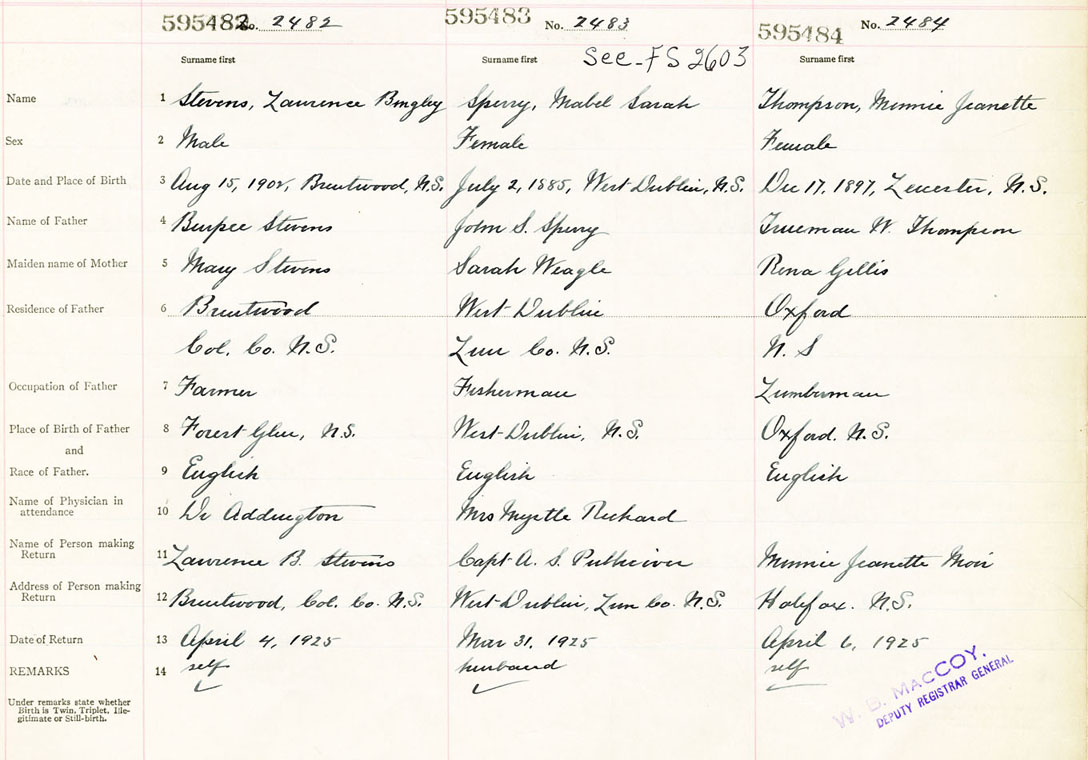 595482 No. 2482 595483 No. 2483 595484 No. 2484
Surname first Surname first See-FS 2603 Surname first
Name 1 Stevens, Lawrence Bingley Sperry, Mabel Sarah Thompson, Minnie Jeanette
Sex 2 Male Female Female
Date and Place of Birth 3 Aug 15, Brentwood, N.S. July 2, 1885, West Dublin, N.S. Dec 17, 1897, Leicester, N.S.
Name of Father 4 Burpee Stevens John S. Sperry Trueman W. Thompson
Maiden name of Mother 5 Mary Stevens Sarah Weagle Rena Gillis
Residence of Father 6 Brentwood West Dublin Oxford
Col. Co. N.S. Lun Co. N.S. N. S
Occupation of Father 7 Farmer Fisherman Lumberman
Place of Birth of Father 8 Forest Glen, N.S. West Dublin, N.S. Oxford. N.S.
and
Race of Father. 9 English English English
Name of Physician in
attendance 10 Dr Addington Mrs Myrtle Richard
Name of Person making
Return 11 Lawrence B. Stevens Capt A. S. Minnie Jeanette Moir
Address of Person making
Return 12 Brentwood, Col. Co. N.S. West Dublin, Lun Co. N.S. Halifax. N.S.
Date of Return 13 April 4, 1925 Mar 31, 1925 April 6, 1925
REMARKS 14 self husband self
Under remarks state whether
Birth is Twin, Triplet, Ille-
gitimate or Still-birth.
W. B. MACCOY,
DEPUTY REGISTRAR GENERAL